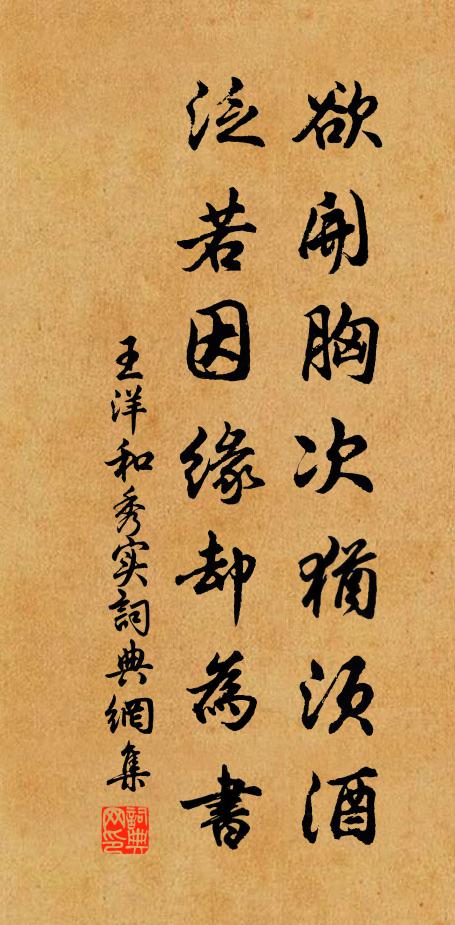 欲開胸次猶須酒
泛若因緣却為書
王洋和秀实詞典網集
詞典网印